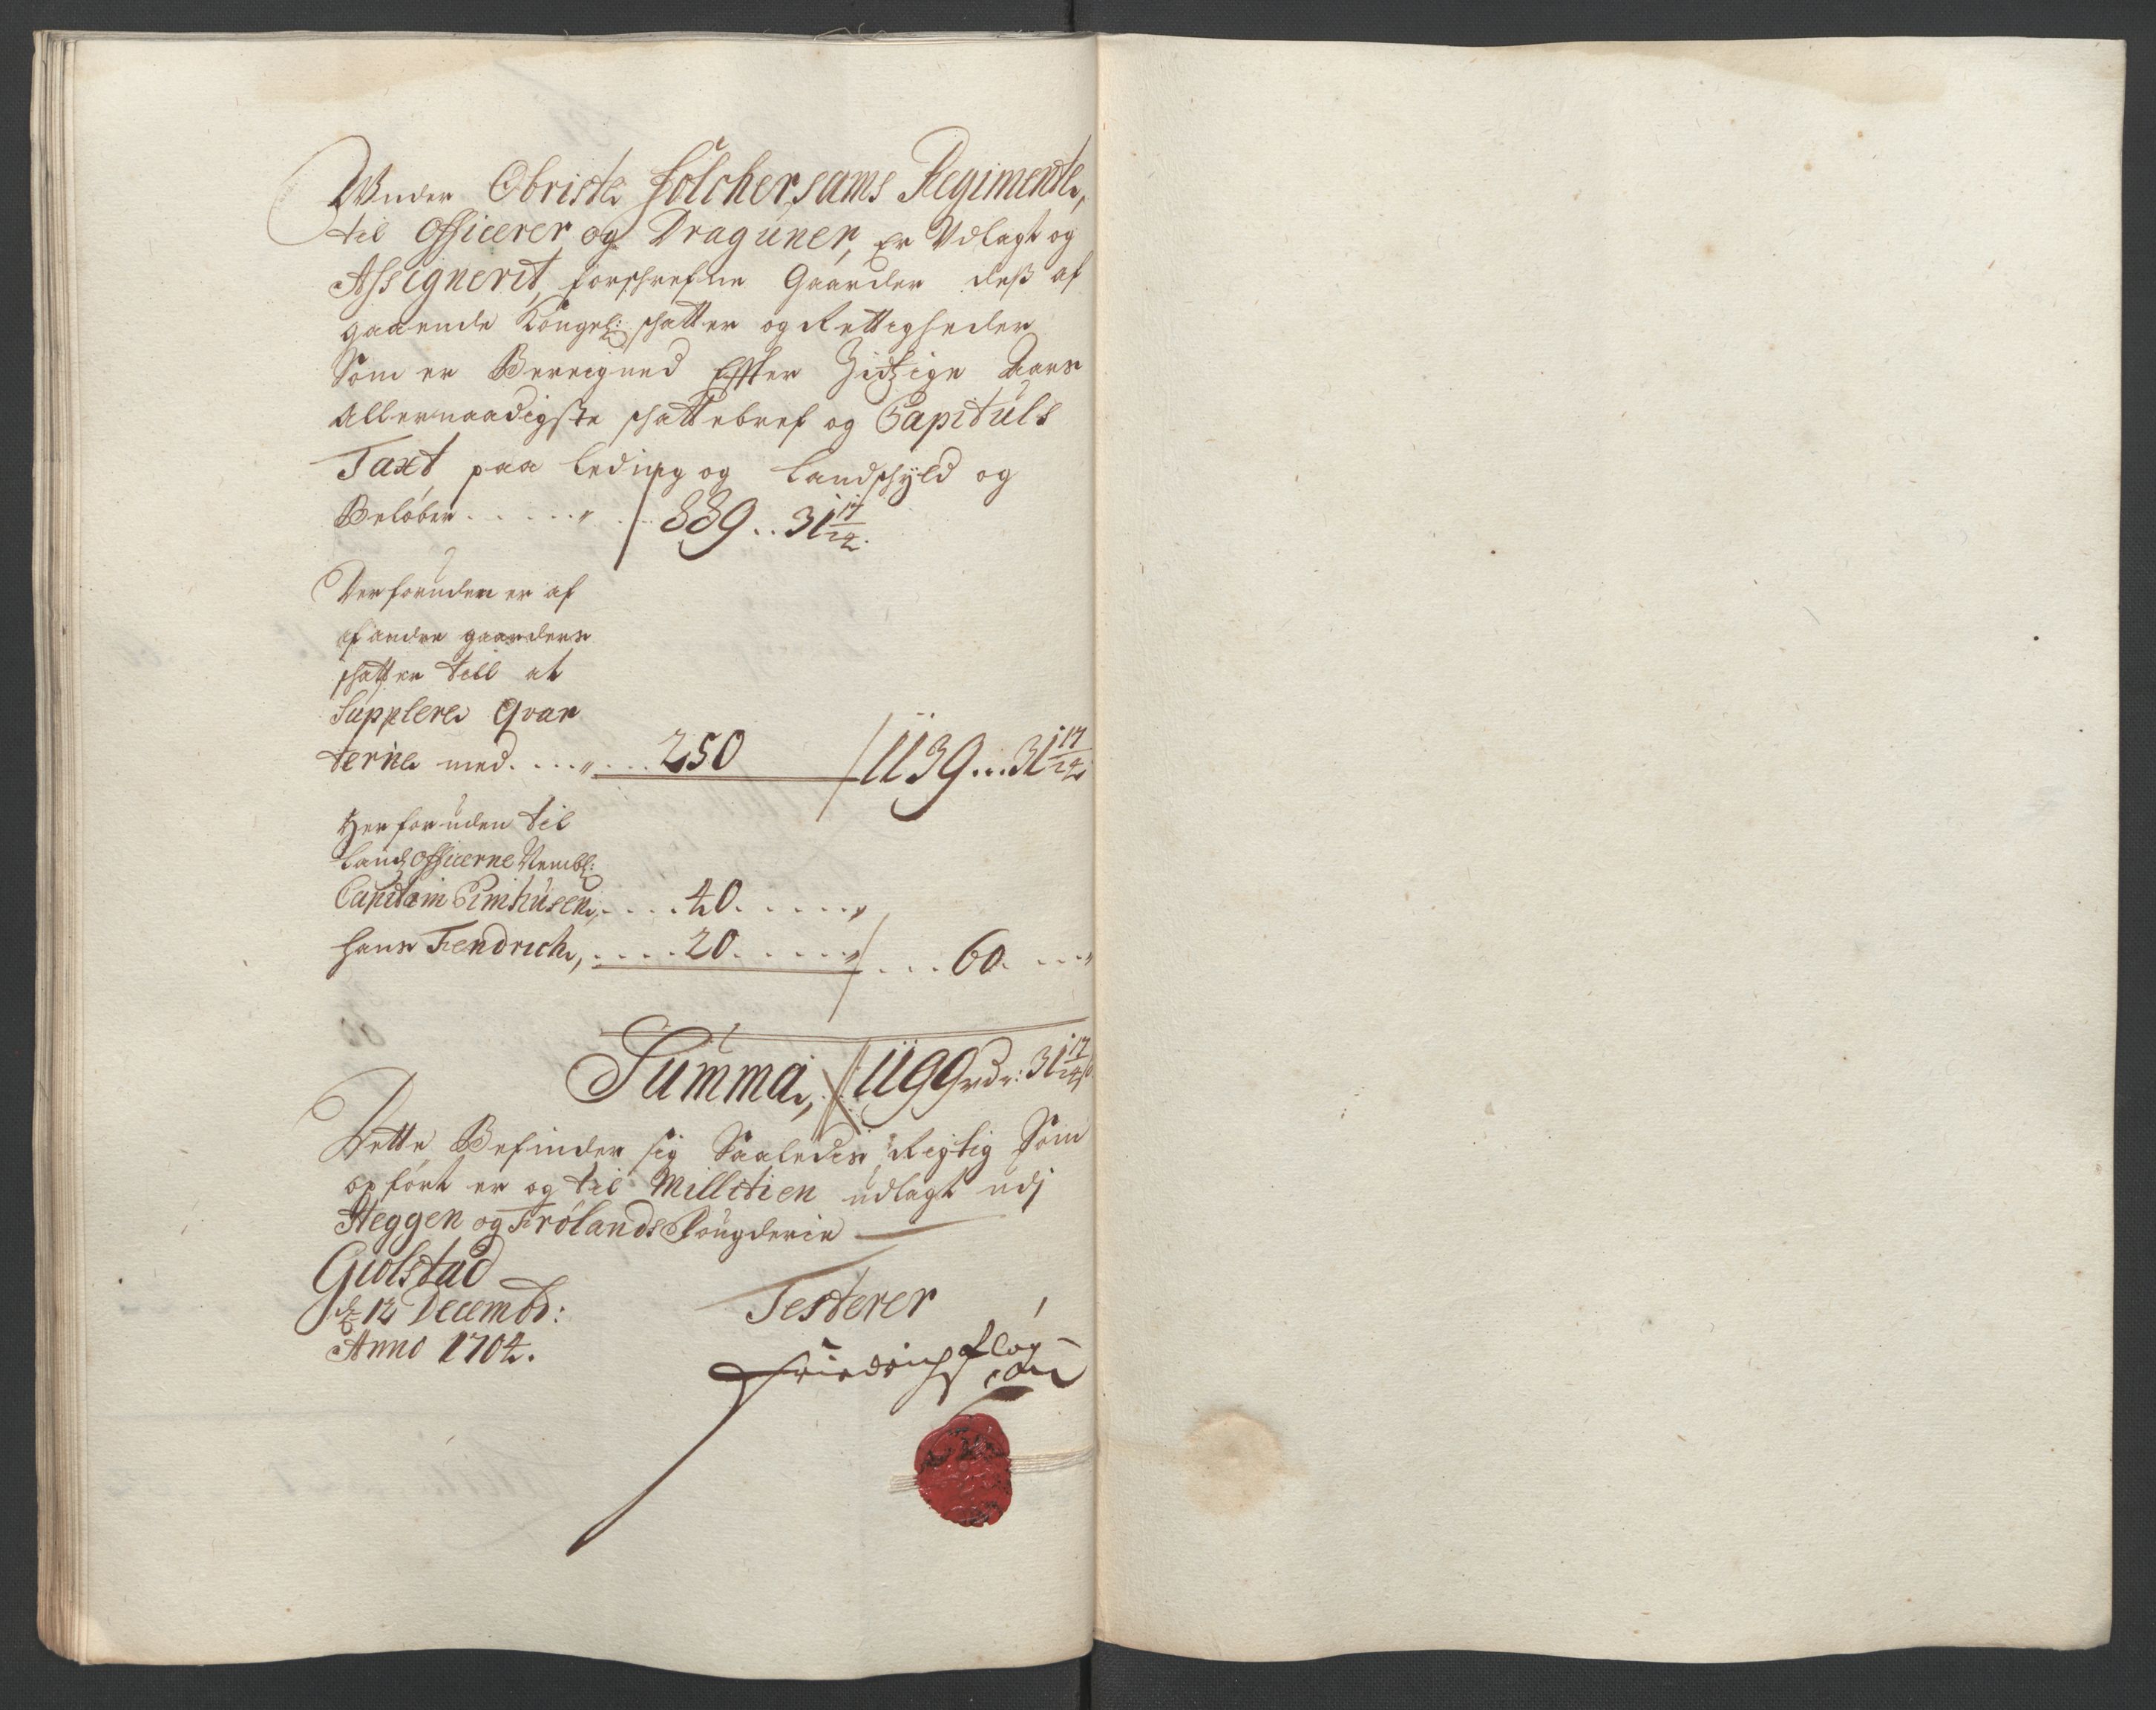 Wnder Obriste Folchersams Regimente,
til Officerer og Dragüner, Er Udlagt og
Assignerit, forschrefne Gaarder deß af
gaaende Kongel: schatter og Rettigheder
Som er Bereigned Effter Aars
Allernaadigste schattebref og Capituls
Taxt, paa leding og landschyld og
Beløber . . . . . 889 .. 31 17/24.
Der foruden er af
af andre gaarders
schatter till at
Supplere Qvar
terine med . . . . 250 1139 ... 31 17/24.
Her foruden til
Landz Officerne Nembl:
Capitain . . . . 40 . . . . .
hans Fendrich, . . . . . 20 . . . . . . . . 60. . . .
Summa, 1199 rdr: 31 17/24 s
Dette Befinder sig Saaledis Rigtig Som
opført er og til Millitien udlagt udj
Heggen og Frølands Fougderie
Giolstad
dz 12 Decembr:
Anno 1704.
Testerer
Friedrich